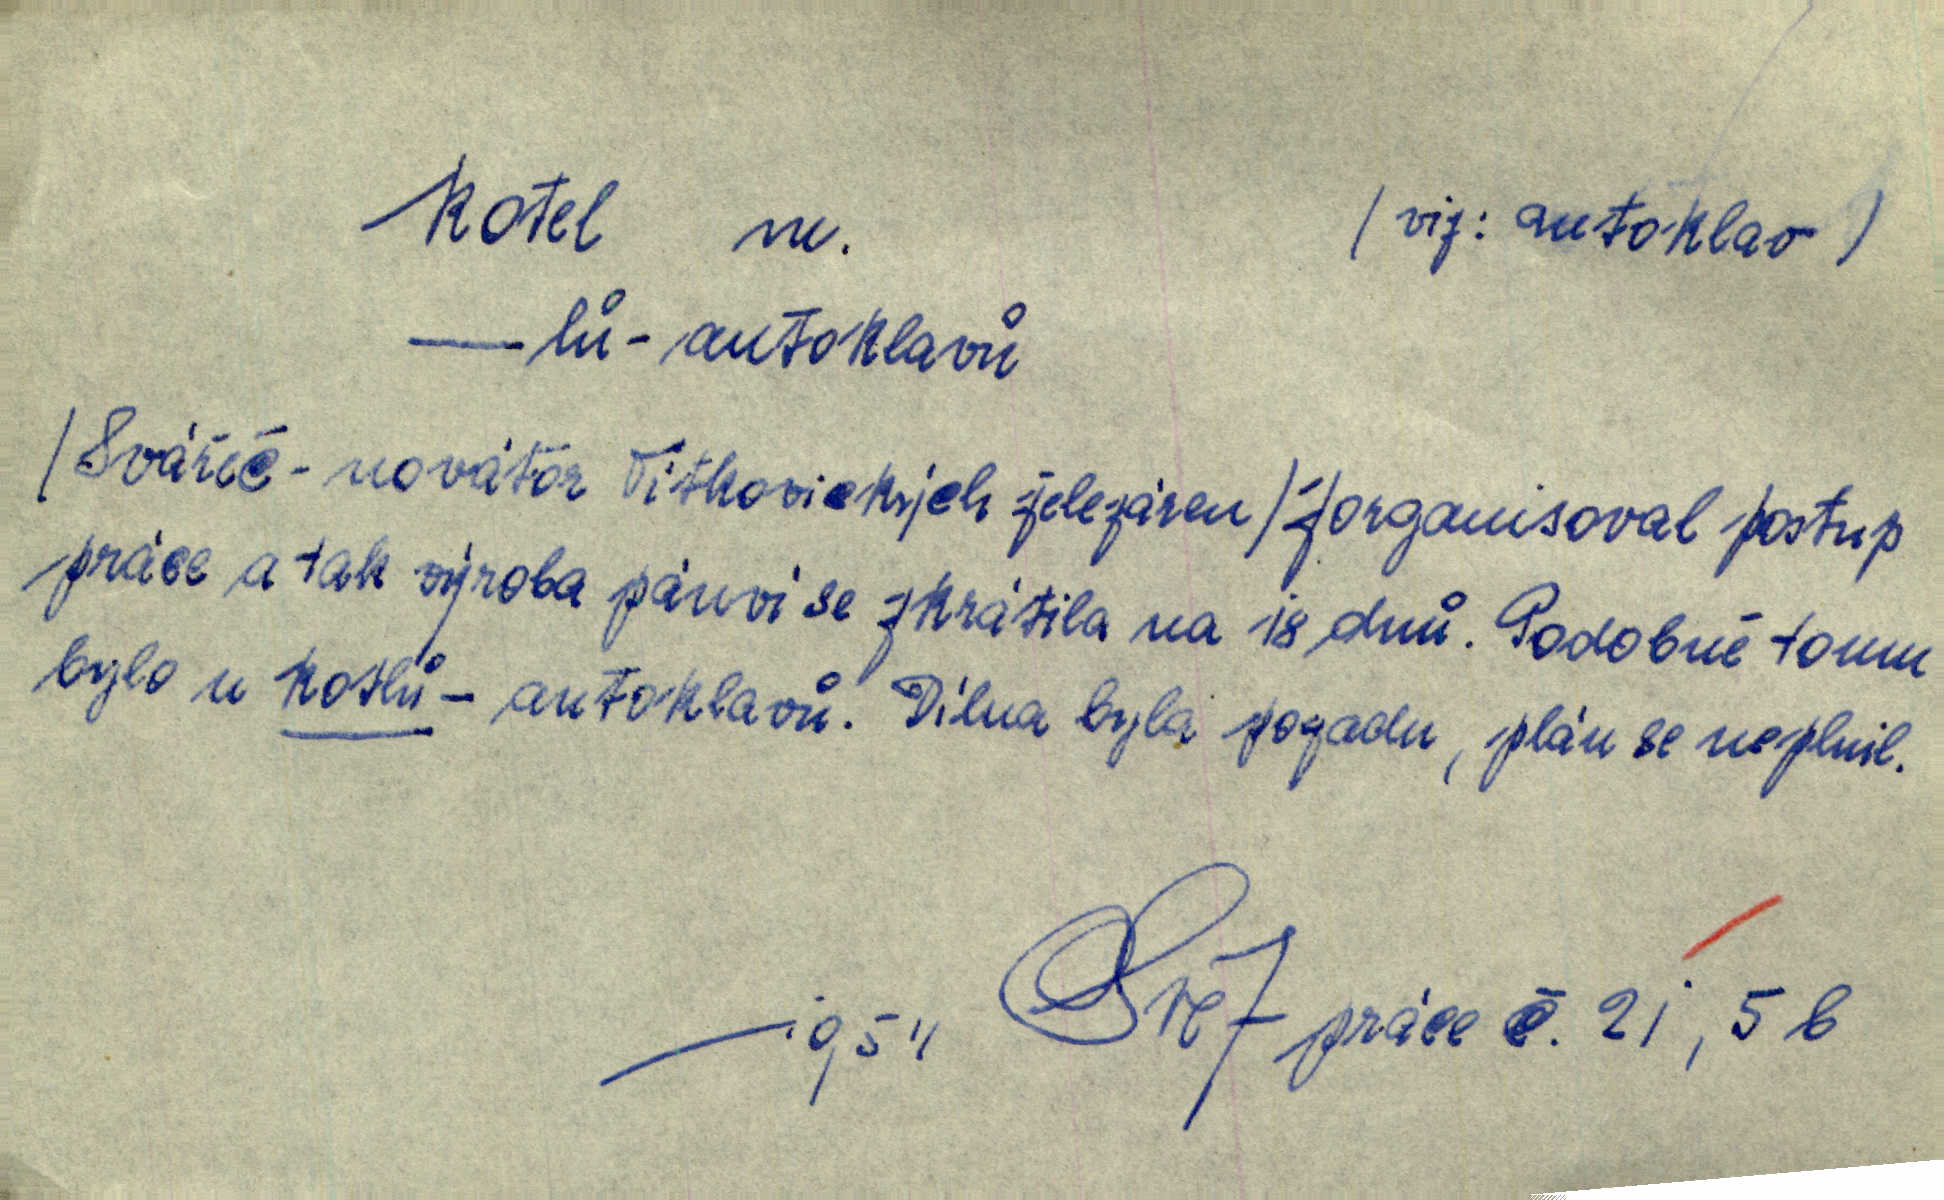 kotel m. (viz: autoklav)
—lů-autoklavů
/Svářeč-novátor Vítkovických železáren/ Zorganisoval postup
práce a tak výroba pánví se zkrátila na 18 dnů. Podobně tomu
bylo u kotlů-autoklavů. Dílna byla pozadu, plán se neplnil.
1954 Svět práce č. 21, 5 b